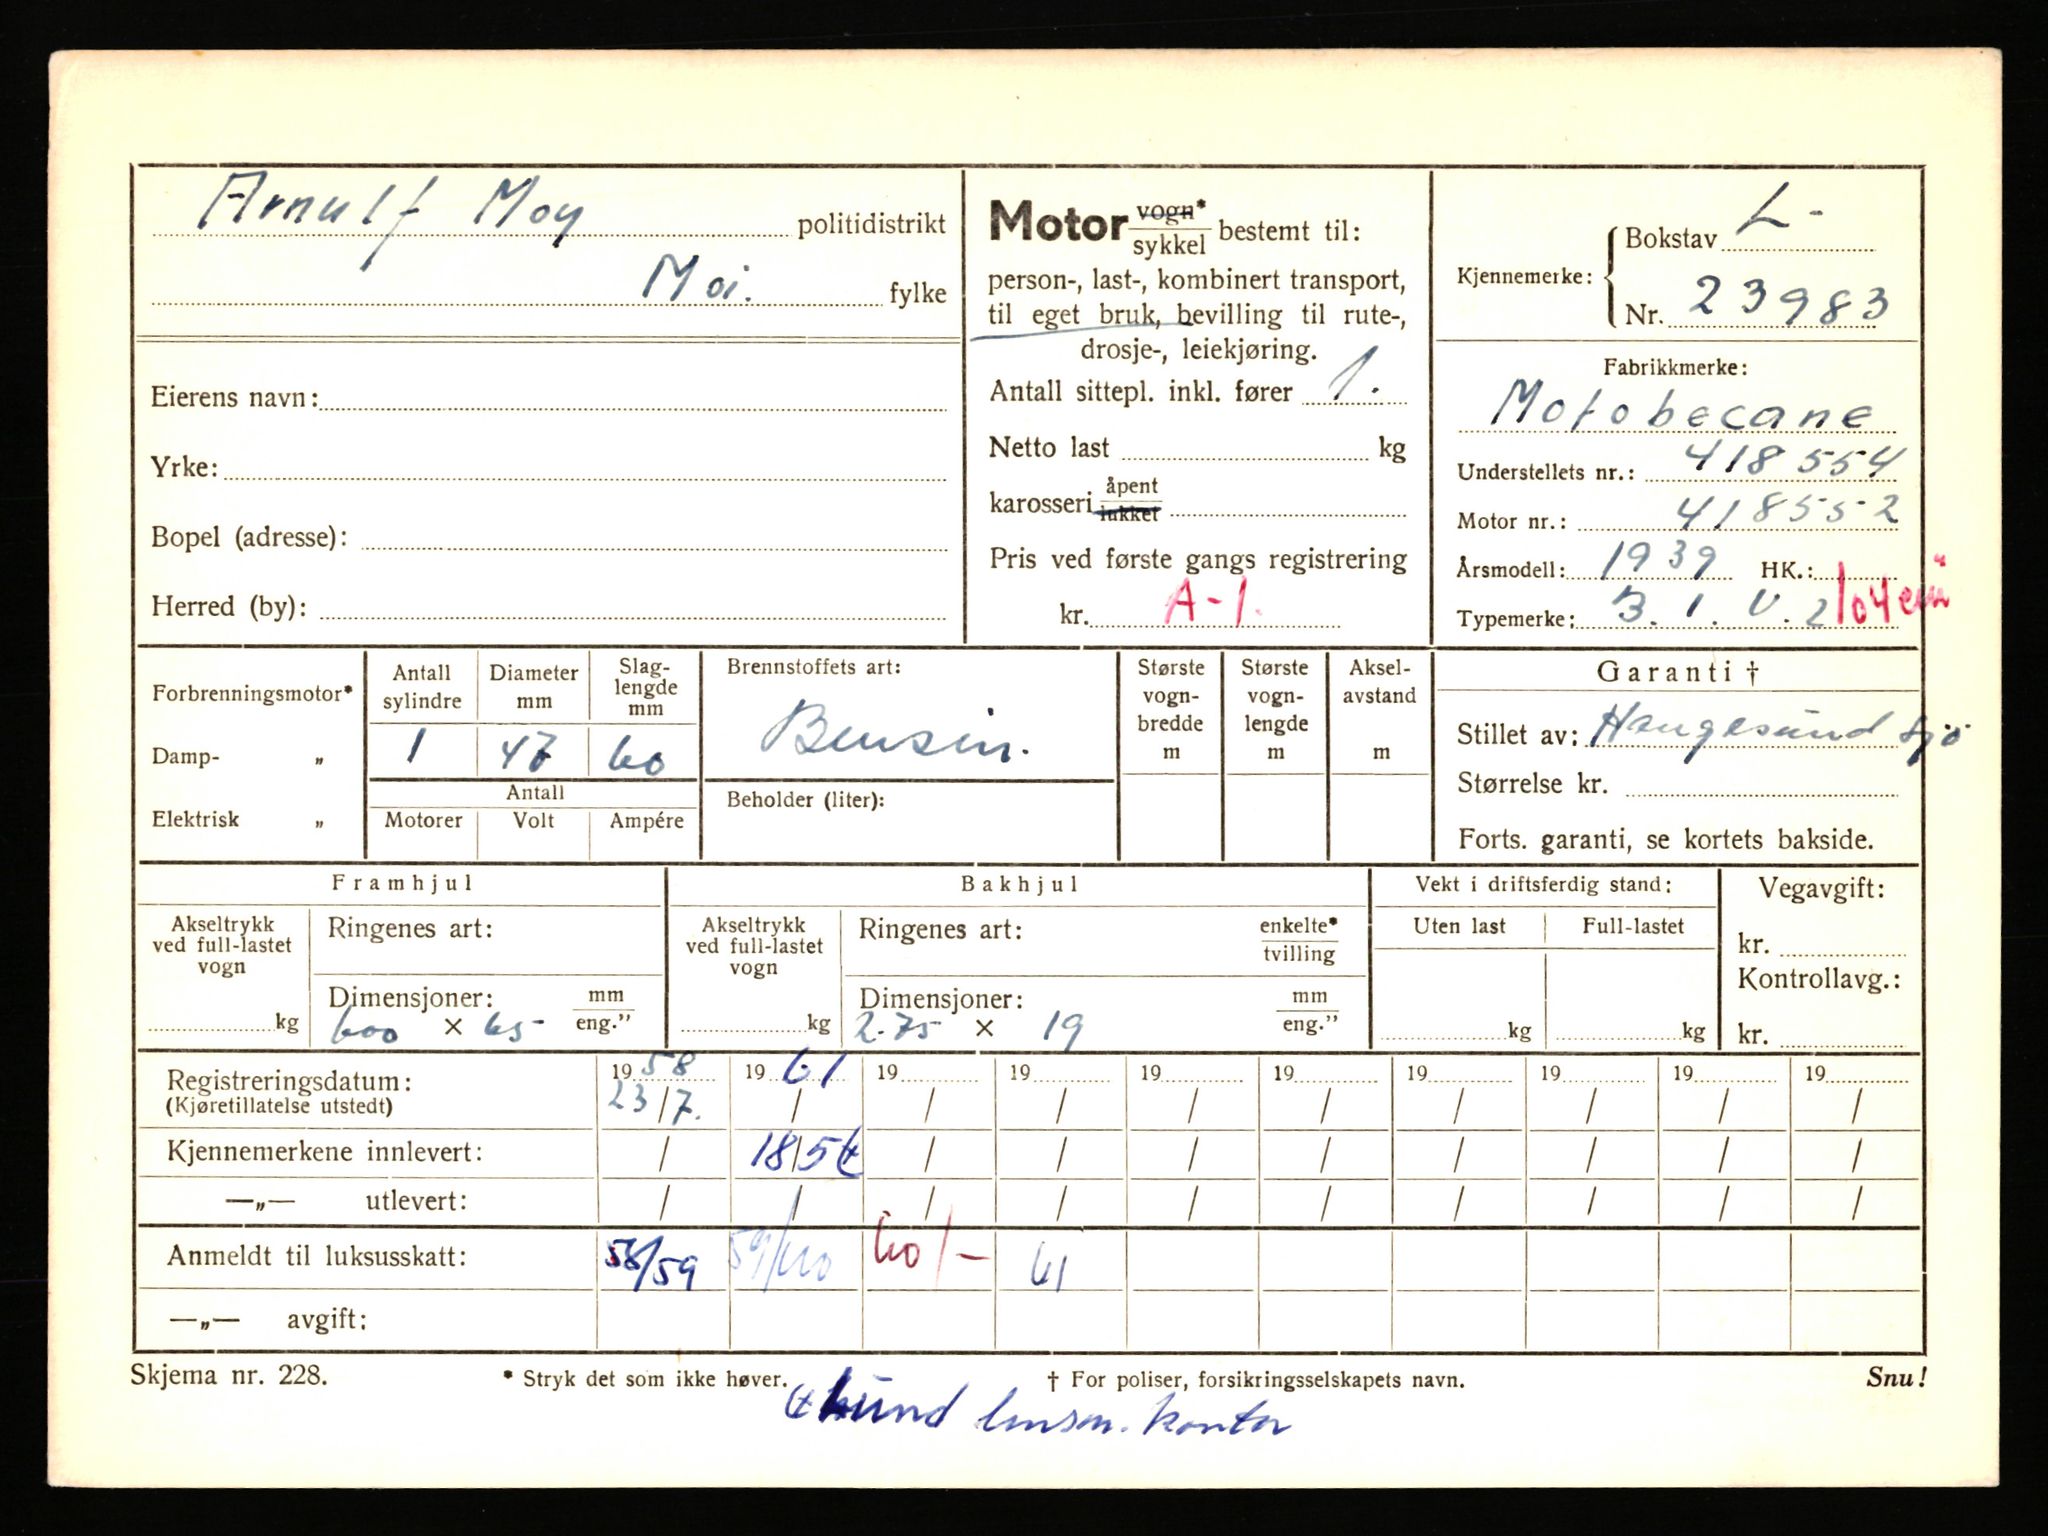 Arnulf Moy politidistrikt
Moi. fylke
Eierens navn:
Yrke:
Bopel (adresse):
Herred (by):
Motor vogn* / sykkel bestemt til:
person-, last-, kombinert transport,
til eget bruk, bevilling til rute-,
drosje-, leiekjøring.
Antall sittepl. inkl. fører 1.
Netto last kg
karosseri åpent / lukket
Pris ved første gangs registrering
kr. A-1.
Kjennemerke: { Bokstav L-
Nr. 23983
Fabrikkmerke:
Motobecane
Understellets nr.: 418554
Motor nr.: 418552
Årsmodell: 1939 HK.:
Typemerke: B. 1. V. 2 104 cm
Forbrenningsmotor*
Damp- „
Elektrisk „
Antall sylindre
1
Diameter mm
47
Slag-lengde mm
60
Antall
Motorer Volt Ampére
Brennstoffets art:
Bensin.
Beholder (liter):
Største vogn-bredde m
Største vogn-lengde m
Aksel-avstand m
Garanti †
Stillet av: Haugesund Sjø
Størrelse kr.
Forts. garanti, se kortets bakside.
Framhjul
Akseltrykk ved full-lastet vogn
kg
Ringenes art:
Dimensjoner: mm / eng."
600 × 65
Bakhjul
Akseltrykk ved full-lastet vogn
kg
Ringenes art: enkelte* / tvilling
Dimensjoner: mm / eng."
2.75 × 19
Vekt i driftsferdig stand:
Uten last Full-lastet
kg kg
Vegavgift:
kr.
Kontrollavg.:
kr.
Registreringsdatum: 19 58 19 61 19 19 19 19 19 19 19 19
(Kjøretillatelse utstedt) 23/7. / / / / / / / / /
Kjennemerkene innlevert: / 18/5 / / / / / / / /
—„— utlevert: / / / / / / / / / /
Anmeldt til luksusskatt: 58/59 59/60 60/- 61
—„— avgift:
Skjema nr. 228. * Stryk det som ikke høver. † For poliser, forsikringsselskapets navn. Snu!
Lund lensm. kontor